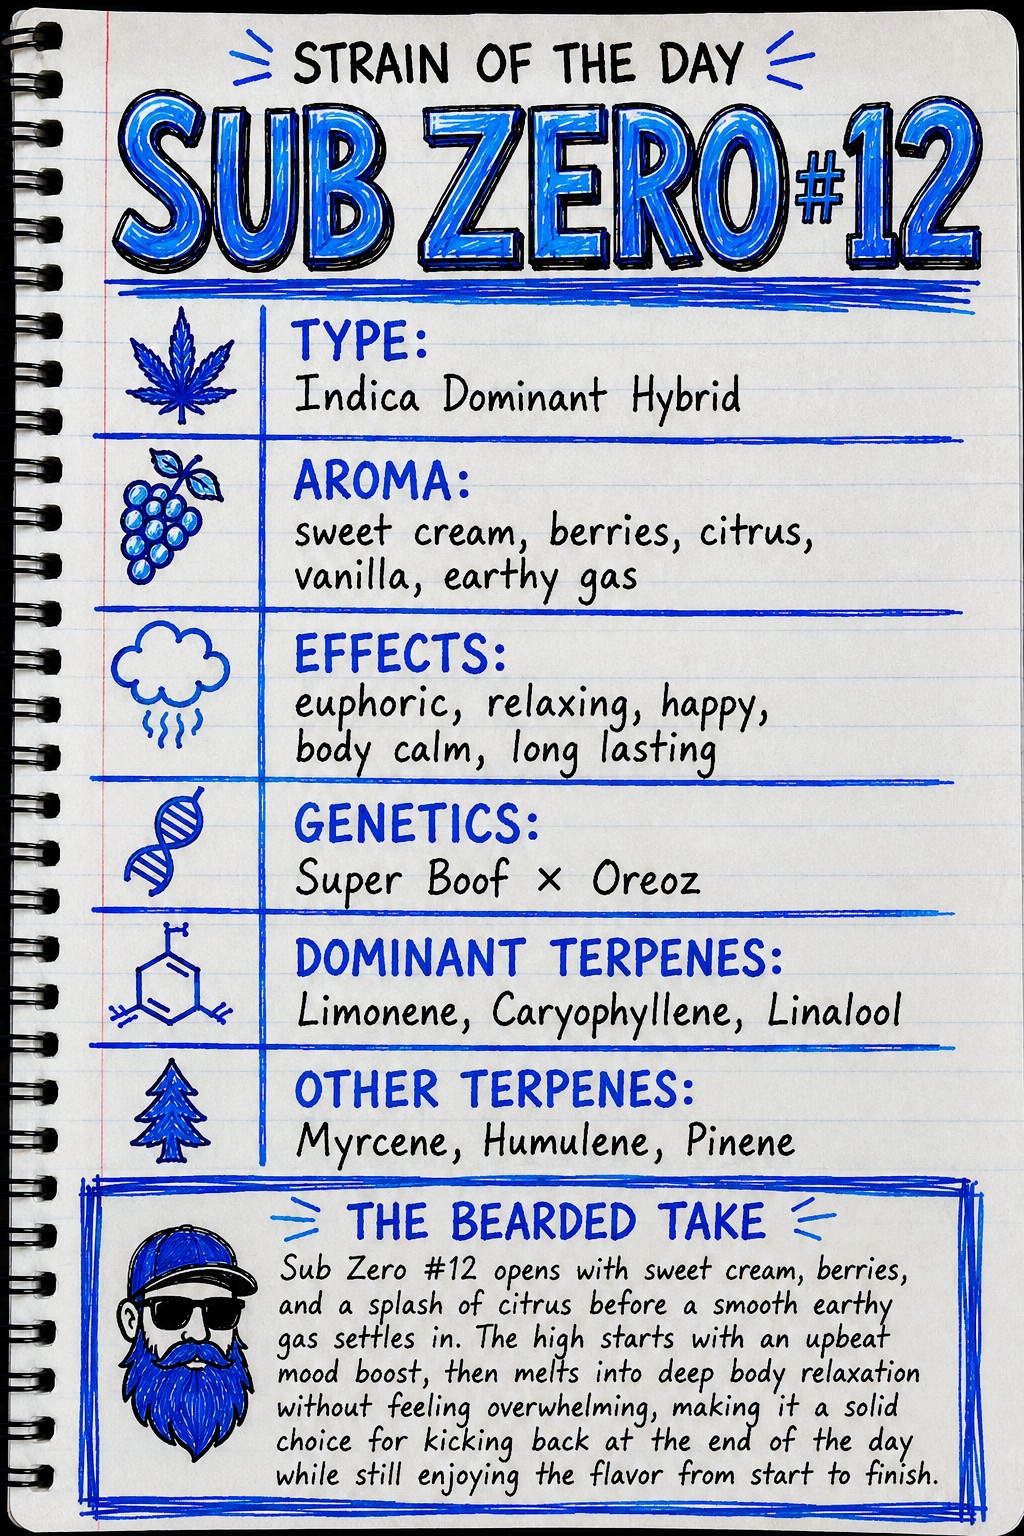 STRAIN OF THE DAY
SUB ZERO #12
TYPE:
Indica Dominant Hybrid
AROMA:
sweet cream, berries, citrus,
vanilla, earthy gas
EFFECTS:
euphoric, relaxing, happy,
body calm, long lasting
GENETICS:
Super Boof × Oreoz
DOMINANT TERPENES:
Limonene, Caryophyllene, Linalool
OTHER TERPENES:
Myrcene, Humulene, Pinene
THE BEARDED TAKE
Sub Zero #12 opens with sweet cream, berries,
and a splash of citrus before a smooth earthy
gas settles in. The high starts with an upbeat
mood boost, then melts into deep body relaxation
without feeling overwhelming, making it a solid
choice for kicking back at the end of the day
while still enjoying the flavor from start to finish.